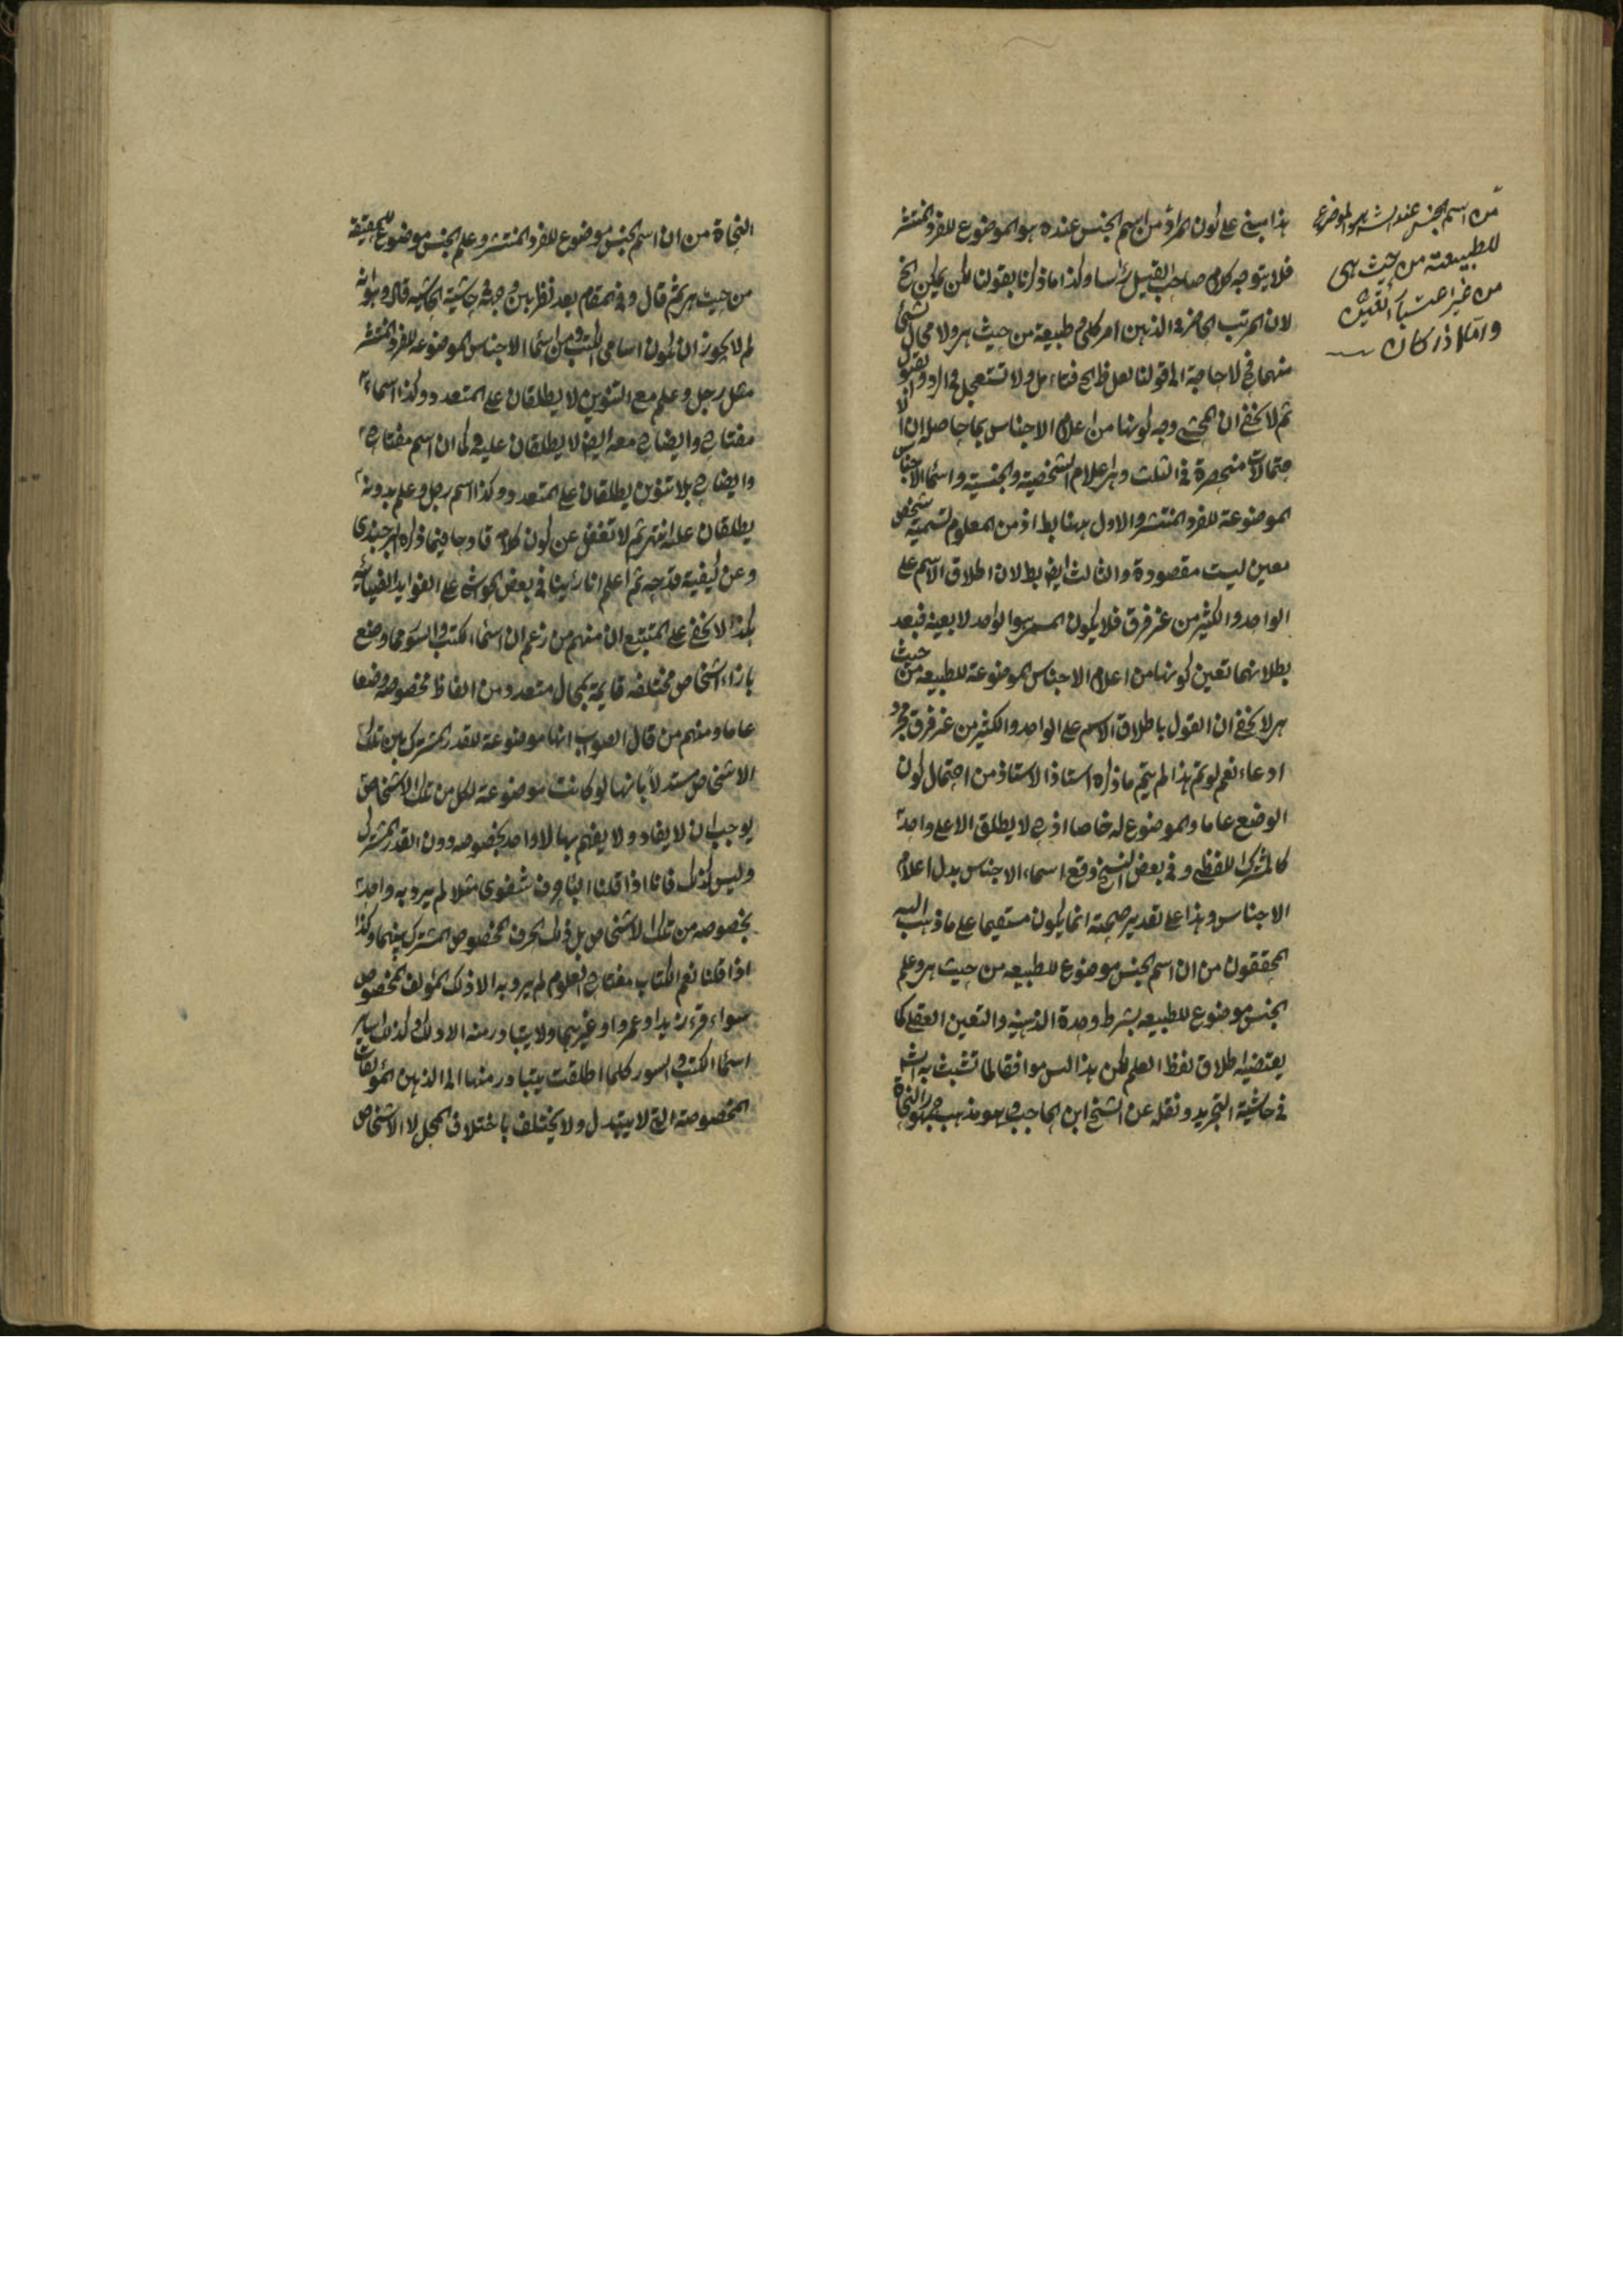 هذا مبني على كون المراد من اسم الجنس عنده هو الموضوع للفرد المنتشر
فلا يتوجه كلام صاحب القيل رأسا وكذا ما ذكرنا بقولنا لكن يمكن الخ
لان المرتب الحاضر في الذهن امر كلي طبيعة من حيث هي ولا مجال لشئ
منهما في لا حاجة الى قولنا لعل ظ الخ فتأمل ولا تستعجل في الرد والقبول
ثم لا يخفى ان المحشي وجه كونها من اعلام الاجناس بما حاصله ان الا
حتمالات منحصرة في الثلث وهي اعلام الشخصية والجنسية واسماء الاجناس
الموضوعة للفرد المنتشر والاول ههنا بط اذ من المعلوم تسمية شخص
معين ليست مقصودة والثالث ايض بط لان اطلاق الاسم على
الواحد والكثير من غير فرق فلا يكون المسمى هو الواحد لا بعينه فبعد
بطلانهما تعين كونها من اعلام الاجناس الموضوعة للطبيعه من حيث
هي لا يخفى ان القول باطلاق الاسم على الواحد والكثير من غير فرق مجرد
ادعاء نعم لو تم هذا لم يتم ما ذكره استاذ الاستاذ من احتمال كون
الوضع عاما والموضوع له خاصا اذ ح لا يطلق الا على واحد
كالمشترك اللفظي وفي بعض النسخ وقع اسماء الاجناس بدل اعلام
الاجناس وهذا على تقدير صحته انما يكون مستقيما على ما ذهب اليه
المحققون من ان اسم الجنس موضوع للطبيعه من حيث هي وعلم
الجنس موضوع للطبيعه بشرط وحدة الذهنية والتعين العقلي كما
يقتضيه اطلاق لفظ العلم لكن هذا ليس موافقا لما تشبث به الش
في حاشية التجريد ونقله عن الشيخ ابن الحاجب وهو مذهب جمهور النحاة
من اسم الجنس عند الش هو الموضوع
للطبيعة من حيث هي
من غير اعتبار التعين
النحاة من ان اسم الجنس موضوع للفرد المنتشر وعلم الجنس موضوع للحقيقة
من حيث هي ثم قال وفي المقام بعد نظر بين وجهه في حاشية الحاشيه قال وهو انه
لم لا يجوز ان يكون اسامي الكتب من اسماء الاجناس الموضوعه للفرد المنتشر
مثل رجل وعلم مع التنوين لا يطلقان على المتعدد وكذا اسماء
مفتاح وايضاح معه ايض لا يطلقان عليه كما ان اسم مفتاح
وايضاح بلا تنوين يطلقان على المتعدد وكذا اسم رجل وعلم بدونه
يطلقان عليه انتهى ثم لا تغفل عن كون كلامه قادحا فيما ذكره البرجندي
وعن كيفية قدحه ثم اعلم انا رأينا في بعض الحواشي على الفوايد الضيائيه
هكذا لا يخفى على المتتبع ان منهم من زعم ان اسماء الكتب والسور مما وضع
بازاء اشخاص مختلفه قايمة بمحال متعدد من الفاظ مخصوصه وضعا
عاما ومنهم من قال الصواب انها موضوعة للقدر المشترك بين تلك
الاشخاص مستدلا بانها لو كانت موضوعة لكل من تلك الاشخاص
يوجب ان لا يفاد ولا يفهم بها الا واحد بخصوصه دون القدر المشترك
وليس كذلك فانا اذا قلنا الباء حرف شفوي مثلا لم يرد به واحد
بخصوصه من تلك الاشخاص بل ذلك الحرف المخصوص المشترك بينهما وكذا
اذا قلنا نعم الكتاب مفتاح العلوم لم يرد به الا ذلك المؤلف المخصوص
سواء قرء زيد او عمرو او غيرهما ولا يتبادر منه الا ذلك وكذلك ساير
اسماء الكتب والسور كلما اطلقت يتبادر منها الى الذهن المؤلفات
المخصوصة التي لا يتبدل ولا يختلف باختلاف المحل لا الاشخاص